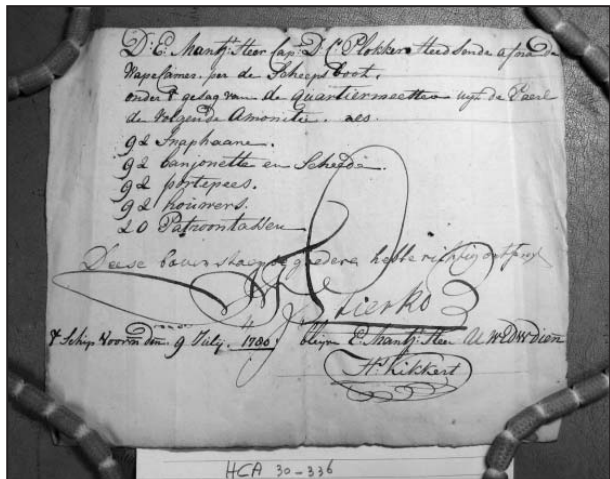 D: E. Mantf: Heer Cap: D C: Plokker steed sende afna de
Wapefaimes. per de Scheeps boot.
onder t gesag van de quartiermeester wijn de
de volgende Amonitie. als
92 Snaphaane.
92 banjonette en Scheede.
92 portepees.
92 houwers.
20 Patroontassen
Deese bovenstaende goedere hebbe richtig ontfang
Stierko
t Schip Voorn den 9 July. 1780. blijve E. Mantf: Heer U W E D W Dien
H: Kikkert
HCA 30-336